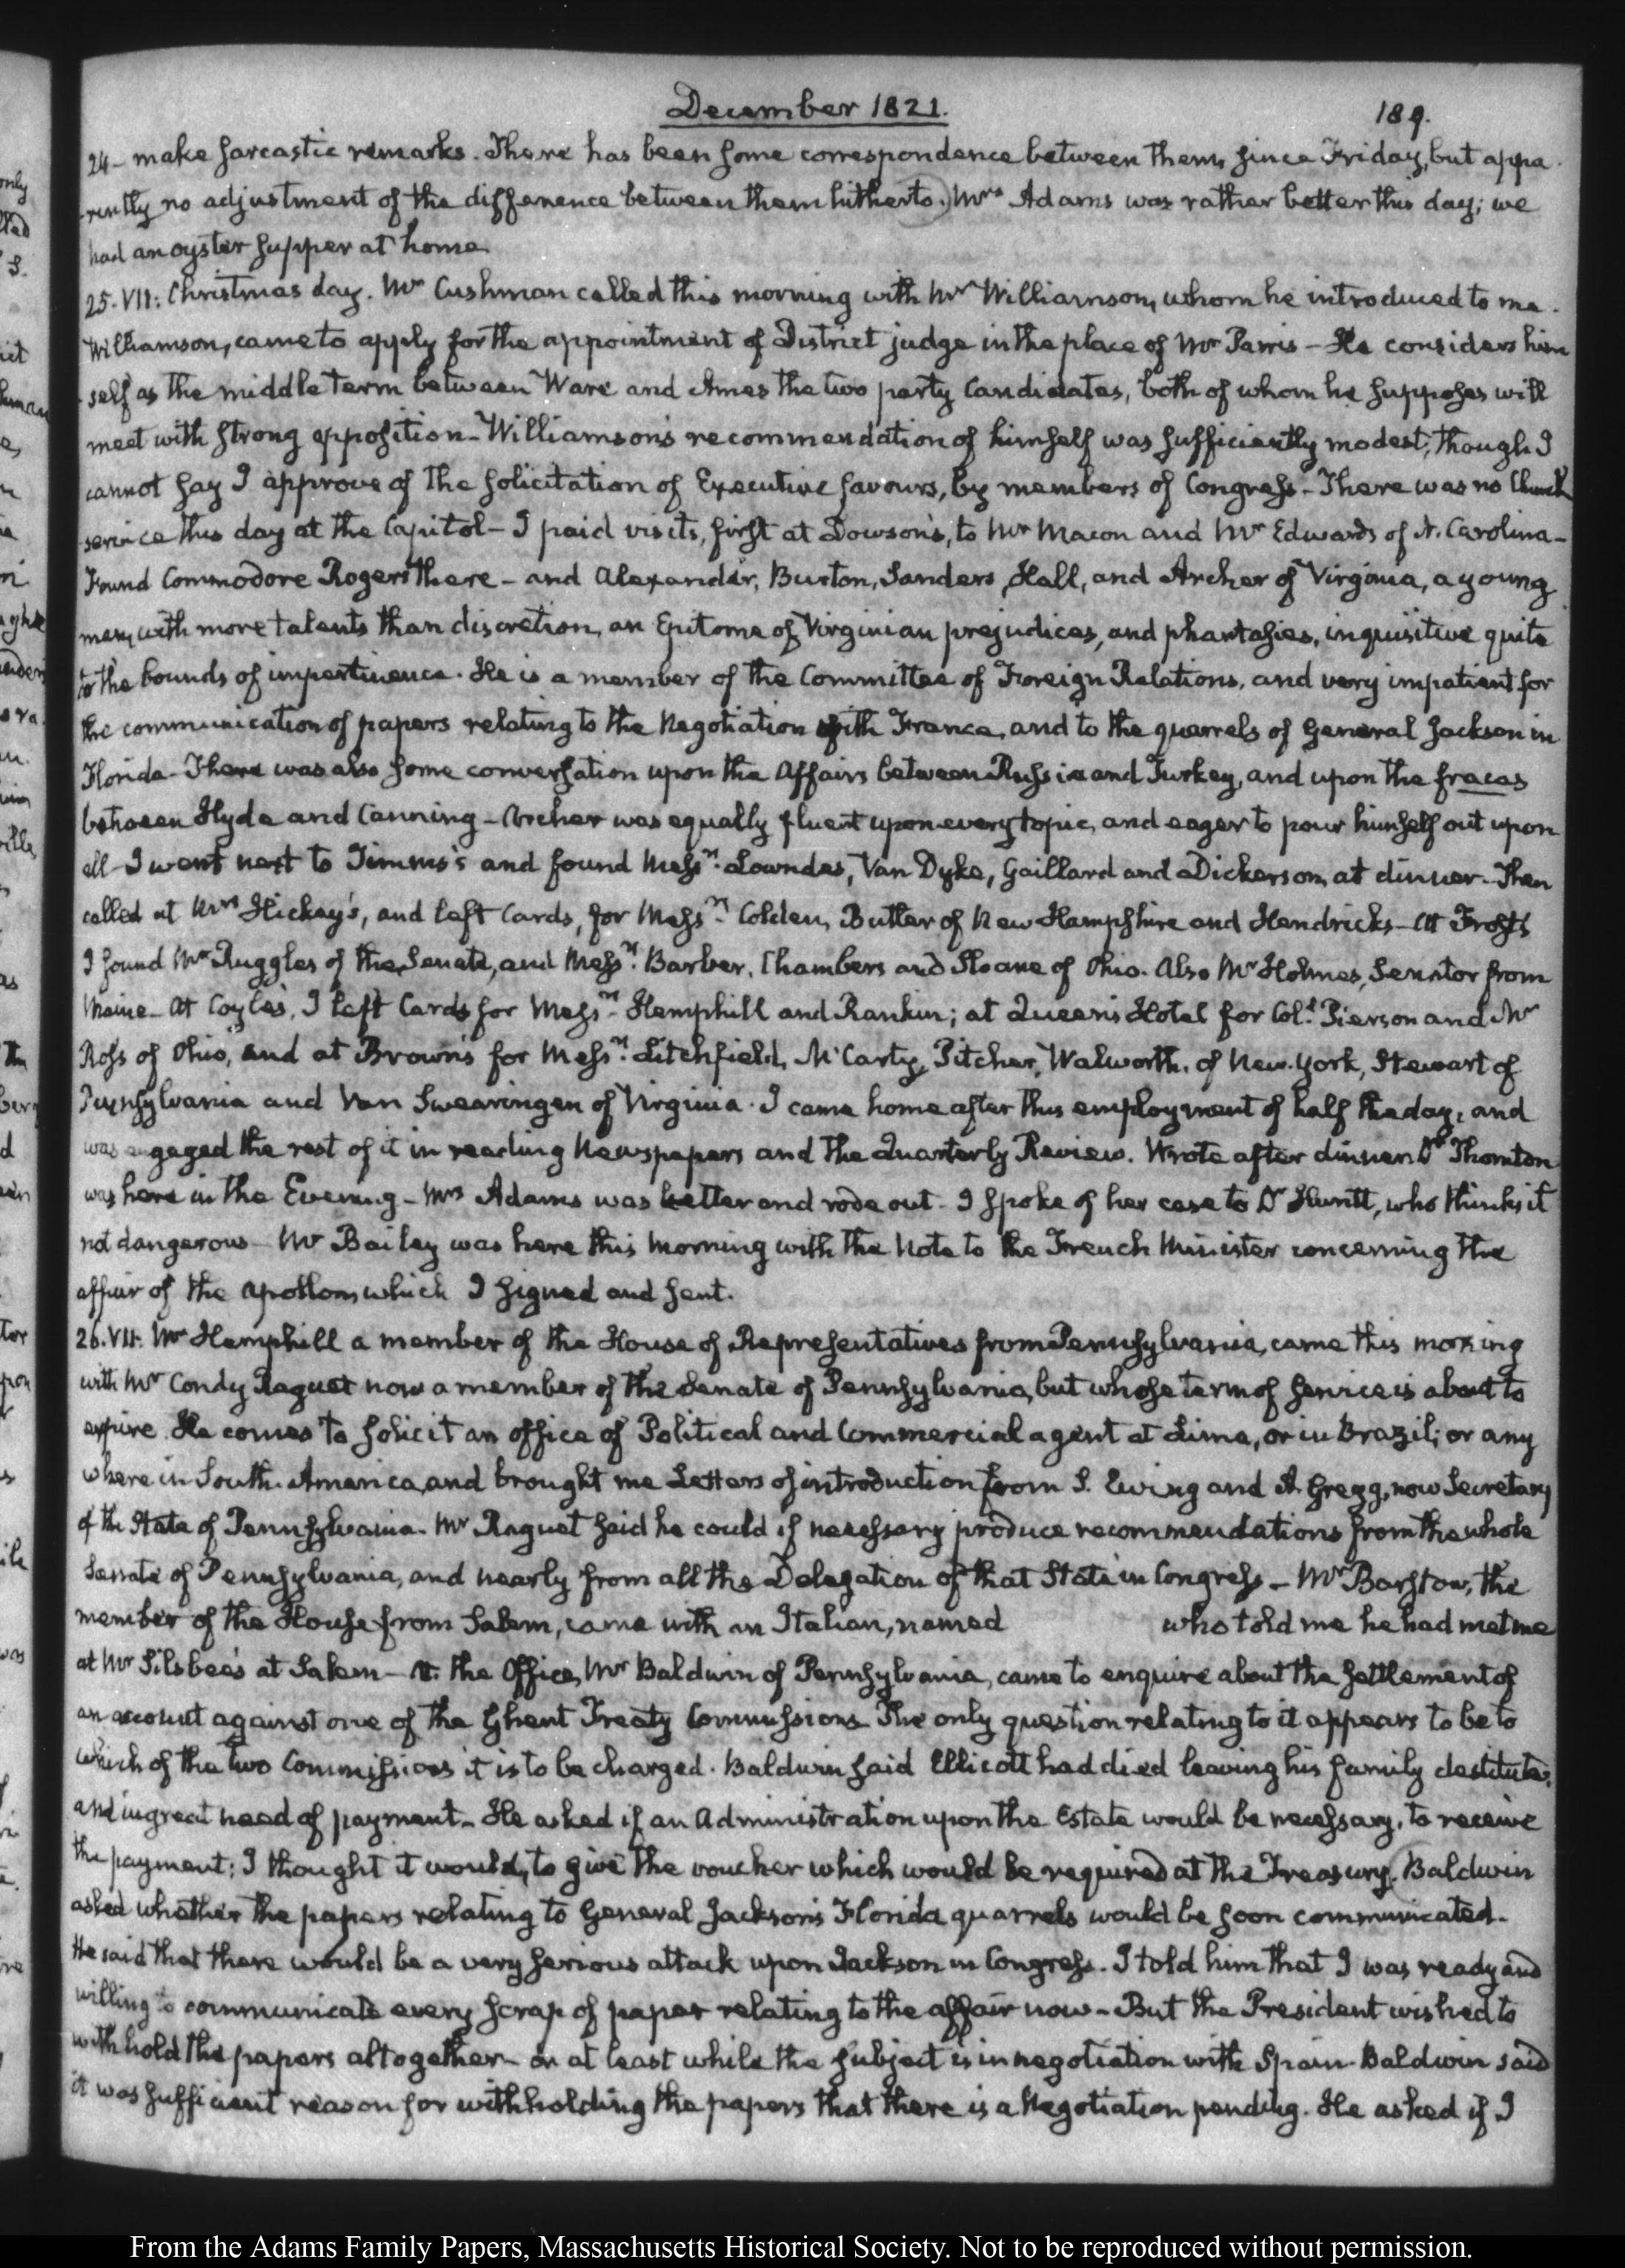 December 1821.
189.
24- make sarcastic remarks. There has been some correspondence between them, since Friday, but appa-
-rently no adjustment of the difference between them hitherto.) Mrs Adams was rather better this day; we
had an oyster supper at home
25. VII: Christmas day. Mr Cushman called this morning with Mr Williamson, whom he introduced to me.
Williamson, came to apply for the appointment of District judge in the place of Mr Parris - He considers him
-self as the middle term between Ware and Ames the two party Candidates, both of whom he supposes will
meet with strong opposition - Williamson's recommendation of himself was sufficiently modest; though I
cannot say I approve of the solicitation of Executive favours, by members of Congress - There was no Church
service this day at the Capitol - I paid visits, first at Dowson's, to Mr Macon and Mr Edwards of N. Carolina -
Found Commodore Rogers there - and Alexander, Burton, Sanders, Hall, and Archer of Virginia, a young
man, with more talents than discretion, an Epitome of Virginian prejudices, and phantasies, inquisitive quite
to the bounds of impertinence. He is a member of the Committee of Foreign Relations, and very impatient for
the communication of papers relating to the Negotiation with France, and to the quarrels of General Jackson in
Florida - There was also some conversation upon the Affairs between Russia and Turkey, and upon the fracas
between Hyde and Canning - Archer was equally fluent upon every topic, and eager to pour himself out upon
all - I went next to Timms's and found Messrs. Lowndes, Van Dyke, Gaillard and Dickerson, at dinner - Then
called at Mrs Hickey's, and left Cards, for Messrs. Colden, Butler of New Hampshire and Hendricks - At Frost's
I found Mr Ruggles of the Senate, and Messrs. Barber, Chambers and Sloane of Ohio. Also Mr Holmes, Senator from
Maine - At Coyle's, I left Cards for Messrs. Hemphill and Rankin; at Queen's Hotel for Coll. Pierson and Mr
Ross of Ohio, and at Brown's for Messrs. Litchfield, McCarty, Pitcher, Walworth, of New-York, Stewart of
Pennsylvania and Van Swearingen of Virginia. I came home after this employment of half the day, and
was engaged the rest of it in reading Newspapers and the Quarterly Review. Wrote after dinner. Dr Thornton
was here in the Evening - Mrs Adams was better and rode out - I spoke of her case to Dr Huntt, who thinks it
not dangerous - Mr Bailey was here this morning with the Note to the French Minister concerning the
affair of the Apollon, which I signed and sent.
26. VII. Mr Hemphill a member of the House of Representatives from Pennsylvania, came this morning
with Mr Condy Raguet now a member of the Senate of Pennsylvania, but whose term of service is about to
expire. He comes to solicit an office of Political and Commercial agent at Lima, or in Brazil; or any
where in South-America, and brought me Letters of introduction from S. Ewing and A. Gregg, now Secretary
of the State of Pennsylvania - Mr Raguet said he could if necessary produce recommendations from the whole
Senate of Pennsylvania, and nearly from all the Delegation of that State in Congress - Mr Barstow, the
member of the House from Salem, came with an Italian, named who told me he had met me
at Mr Silsbee's at Salem - At the Office, Mr Baldwin of Pennsylvania, came to enquire about the settlement of
an account against one of the Ghent Treaty Commissions. The only question relating to it appears to be to
which of the two Commissions it is to be charged. Baldwin said Ellicott had died leaving his family destitute,
and in great need of payment - He asked if an Administration upon the Estate would be necessary, to receive
the payment: I thought it would, to give the voucher which would be required at the Treasury. (Baldwin
asked whether the papers relating to General Jackson's Florida quarrels would be soon communicated -
He said that there would be a very serious attack upon Jackson in Congress. I told him that I was ready and
willing to communicate every scrap of paper relating to the affair now - But the President wished to
withhold the papers altogether - or at least while the subject is in negotiation with Spain - Baldwin said
it was sufficient reason for withholding the papers that there is a Negotiation pending. He asked if I
From the Adams Family Papers, Massachusetts Historical Society. Not to be reproduced without permission.